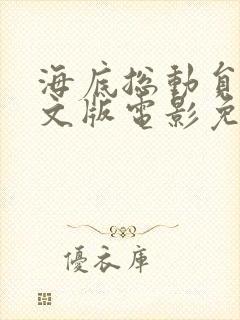 海底总動員
文版電影免
優衣庫